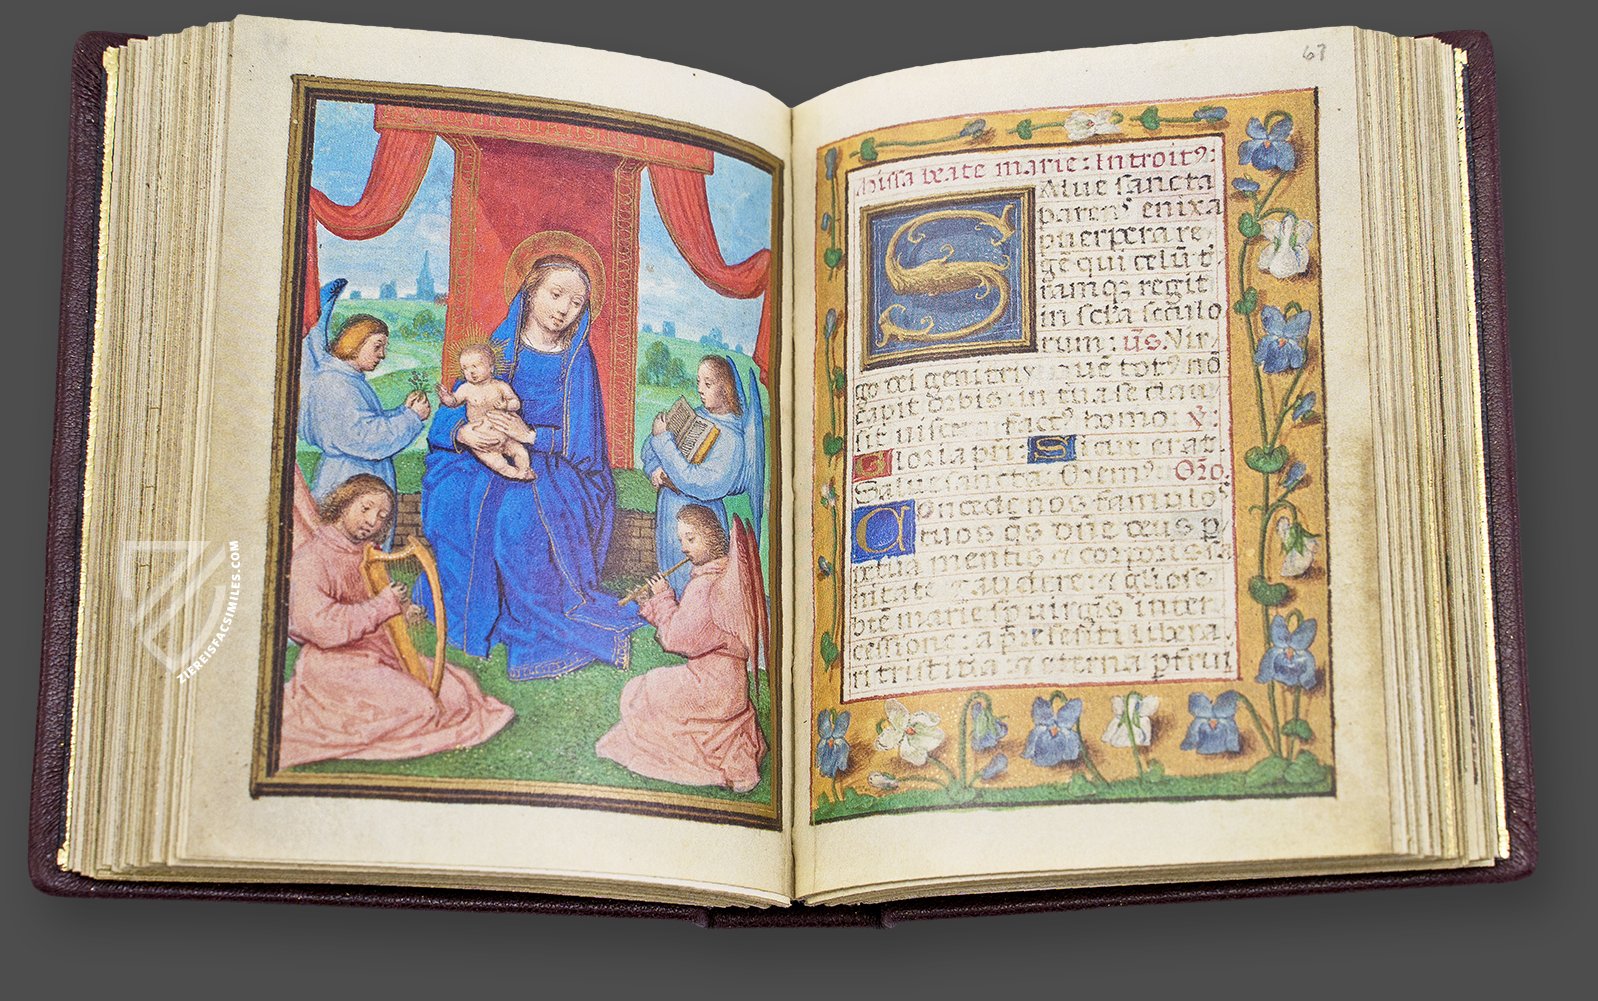 67
Missa beate marie: Introitꝰ:
Salue sancta
parenˢ enixa
puerpera re
gē qui celū t̄
ramqꝫ regit
in scl'a seculo
rum: v̄s. Vir
go dei genitrix, que totꝰ nō
capit orbis: in tua se clau
sit viscera factꝰ homo. V:
Gloria pri: Sicut erat
Salue sancta. Oremꝰ. Oro.
Concede nos famuloˢ
tuos qs dn̄e deus p
petua mentis ⁊ corporis sa
nitate gaudere: ⁊ gl'iose
bt̄e marie sp virgis inter
cessione: a pn̄senti libera
ri tristitia: ⁊ eterna pfrui
ZIEREISFACSIMILES.COM